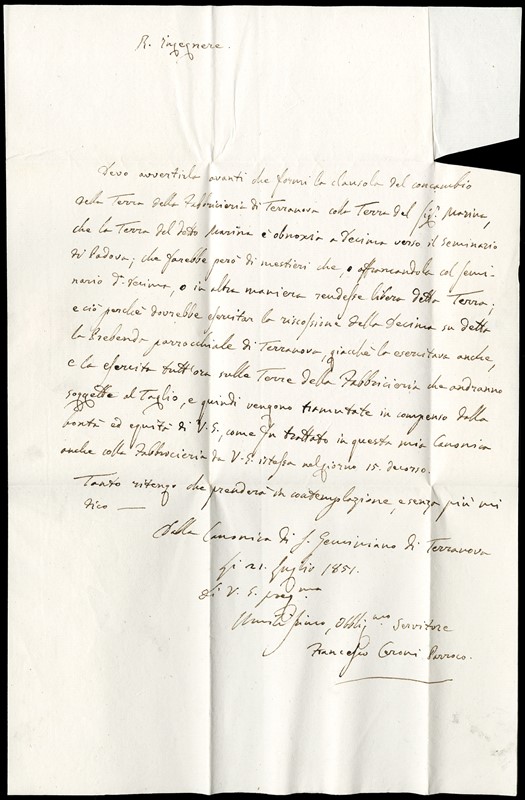 R. Ingegnere.
Devo avvertirla avanti che formi la clausola del concambio
della Terra della Fabbricieria di Terranova colla Terra del Sig.r Marina,
che la Terra del detto Marina è obnoxia a Decima verso il Seminario
di Padova; che farebbe però di mestieri che, o affrancandola col Semi-
nario d.a Decima, o in altra maniera rendesse libera detta Terra;
e ciò perchè dovrebbe esercitar la riscossione della Decima su detta
la Prebenda parrocchiale di Terranova, giacchè la esercitava anche,
e la esercita tutt'ora sulle Terre della Fabbricieria che andranno
soggette al Taglio, e quindi vengono tramutate in compenso dalla
bontà ed equità di V. S., come fu trattato in questa mia Canonica
anche colla Fabbricieria da V. S. istessa nel giorno 15. decorso.
Tanto ritengo che prenderà in contemplazione, e senza più mi
dico —
Dalla Canonica di S. Geminiano di Terranova
li 21. Luglio 1851.
Di V. S. preg.ma
Umilissimo, Obblig.mo Servitore
Francesco Ceroni Parroco.